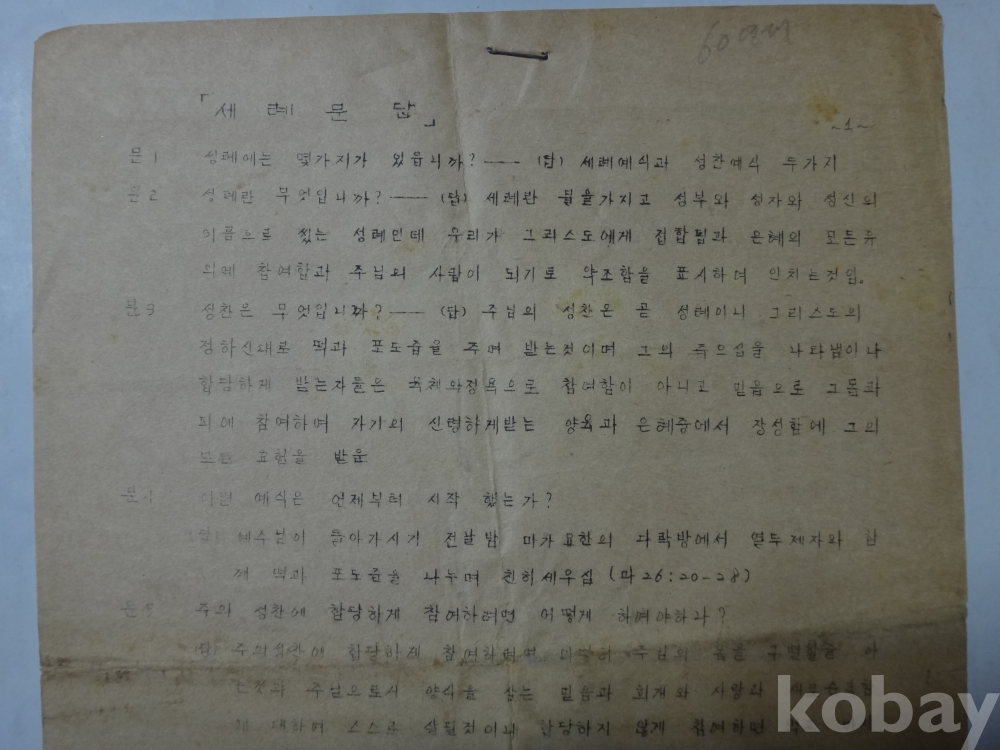 60년대
「세 례 문 답」
~1~
문1 성례에는 몇가지가 있읍니까? —— (답) 세례예식과 성찬예식 두가지
문2 성례란 무엇입니까? —— (답) 세례란 물을가지고 성부와 성자와 성신의
이름으로 씻는 성례인데 우리가 그리스도에게 접합됨과 은혜의 모든유
익에 참여함과 주님의 사람이 되기로 약조함을 표시하며 인치는것임.
문3 성찬은 무엇입니까? —— (답) 주님의 성찬은 곧 성례이니 그리스도의
정하신대로 떡과 포도즙을 주며 받는것이며 그의 죽으심을 나타냄이나
합당하게 받는자들은 육체와정욕으로 참여함이 아니고 믿음으로 그몸과
피에 참여하며 자기의 신령하게받는 양육과 은혜중에서 장성함에 그의
모든 효험을 받음
문4 이런 예식은 언제부터 시작 했는가?
(답) 예수님이 돌아가시기 전날밤 마가요한의 다락방에서 열두제자와 함
께 떡과 포도즙을 나누며 친히세우심 (마26:20-28)
문5 주의 성찬에 합당하게 참여하려면 어떻게 하여야하나?
(답) 주의성찬에 합당하게 참여하려면 마땅히 주님의 몸을 구별할줄 아
는것과 주님으로서 양식을 삼는 믿음과 회개와 사랑과
에 대하여 스스로 살필것이니 합당하지 않게 참여하면
kobay